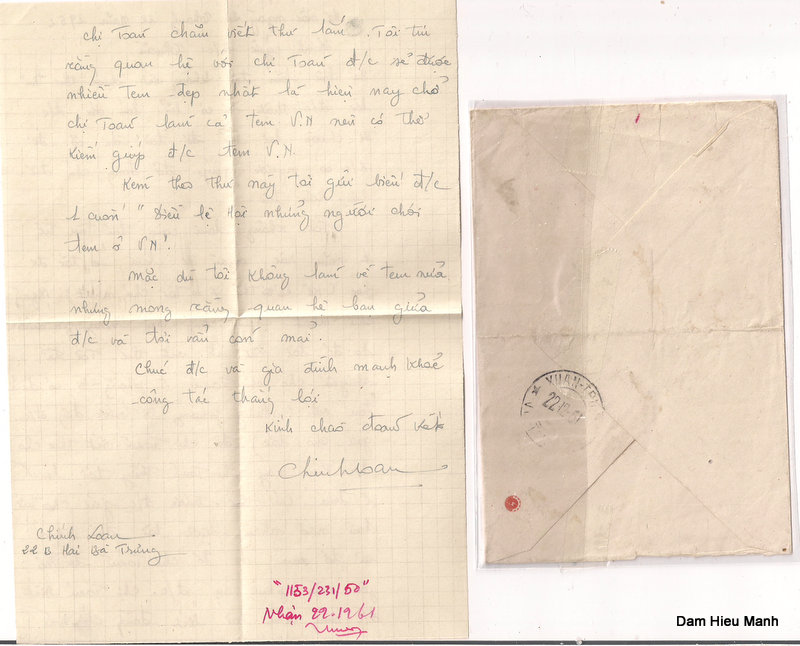 chị Toán chăm viết thư lắm. Tôi tin
rằng quan hệ với chị Toán đ/c sẽ được
nhiều tem đẹp nhất là hiện nay chỗ
chị Toán làm cả tem V.N nên có thể
kiếm giúp đ/c tem V.N.
Kèm theo thư này tôi gửi biếu đ/c
1 cuốn "Điều lệ Hội những người chơi
tem ở VN".
Mặc dù tôi không làm về tem nữa
nhưng mong rằng quan hệ bạn giữa
đ/c và tôi vẫn còn mãi.
Chúc đ/c và gia đình mạnh khoẻ
công tác thắng lợi
Kính chào đoàn kết
Chinhloan
Chinh Loan
22 B Hai Bà Trưng
"1153/231/50"
Nhận 22-1961
XUAN-
22
Dam Hieu Manh